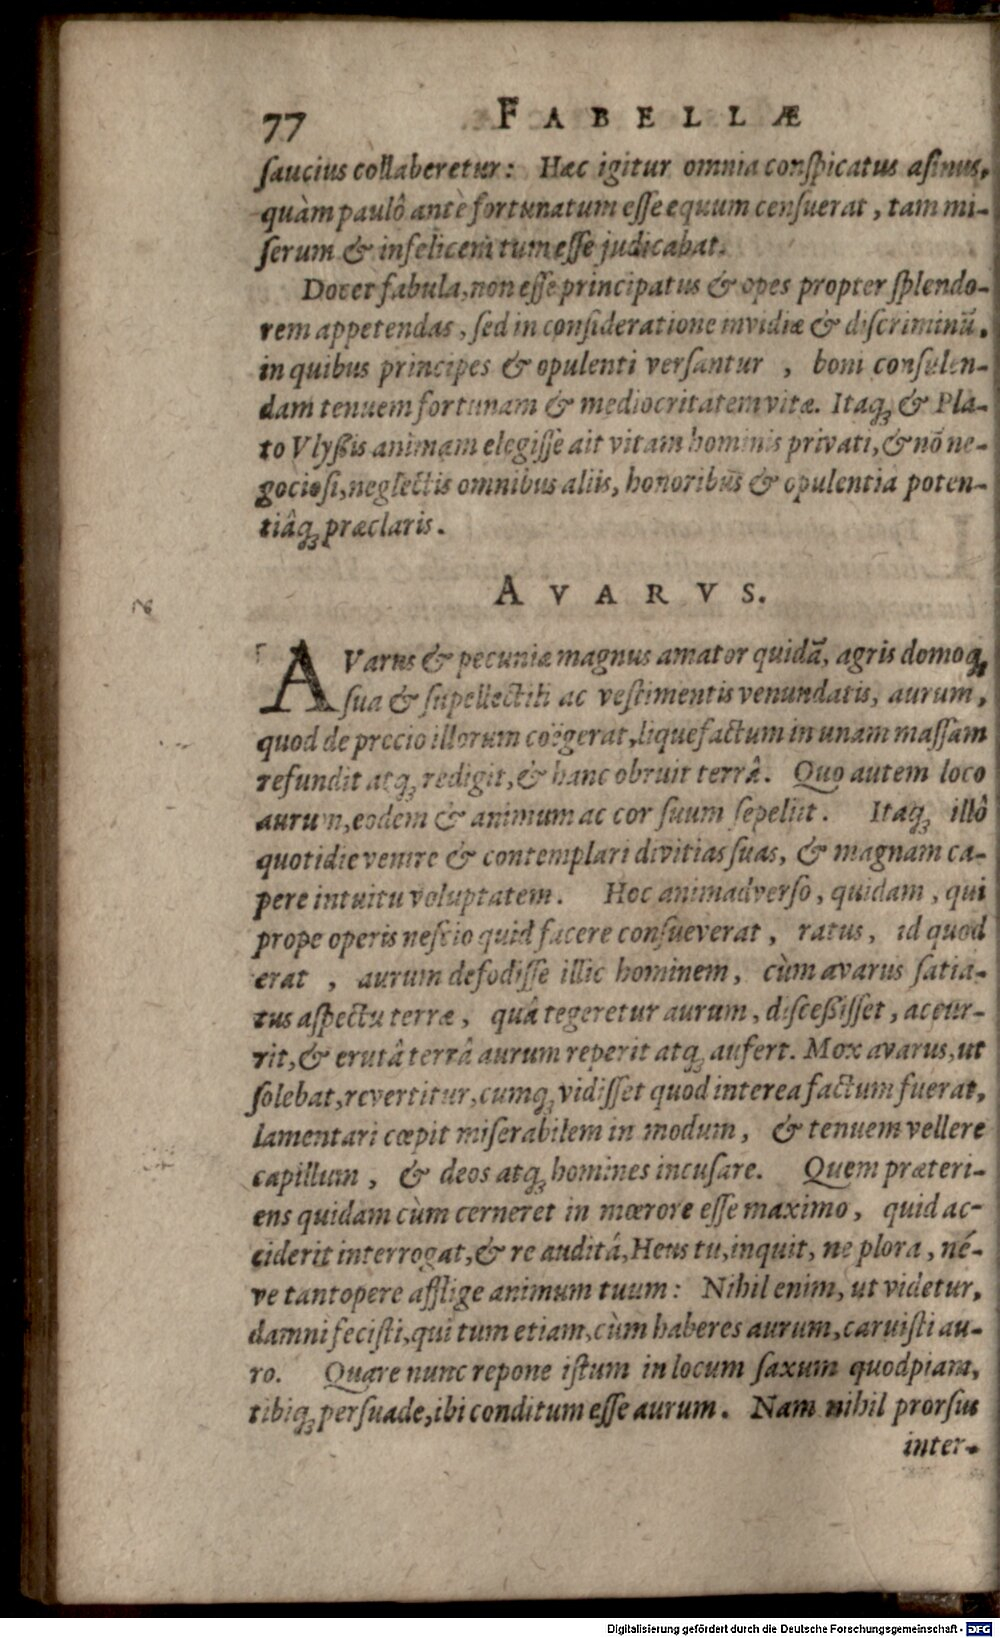 77 FABELLÆ
ſaucius collaberetur: Hæc igitur omnia conſpicatus aſinus,
quàm paulô antè fortunatum eſſe equum cenſuerat, tam mi-
ſerum & infelicem tum eſſe judicabat.
Docet fabula, non eſſe principatus & opes propter ſplendo-
rem appetendas, ſed in conſideratione invidiæ & diſcriminū,
in quibus principes & opulenti verſantur, boni conſulen-
dam tenuem fortunam & mediocritatem vitæ. Itaq́ꝫ & Pla-
to Vlyßis animam elegiſſe ait vitam hominis privati, & nō ne-
gocioſi, neglectis omnibus aliis, honoribus & opulentia poten-
tiâqꝫ præclaris.
AVARVS.
AVarus & pecuniæ magnus amator quidā, agris domoqꝫ
ſua & ſupellectili ac veſtimentis venundatis, aurum,
quod de precio illorum coëgerat, liquefactum in unam maſſam
refundit atqꝫ redigit, & hanc obruit terrâ. Quo autem loco
aurum, eodem & animum ac cor ſuum ſepeliit. Itaqꝫ illô
quotidie venire & contemplari divitias ſuas, & magnam ca-
pere intuitu voluptatem. Hoc animadverſo, quidam, qui
prope operis neſcio quid facere conſueverat, ratus, id quod
erat, aurum defodiſſe illic hominem, cùm avarus ſatia-
tus aſpectu terræ, quâ tegeretur aurum, diſceßiſſet, accur-
rit, & erutâ terrâ aurum reperit atqꝫ aufert. Mox avarus, ut
ſolebat, revertitur, cumqꝫ vidiſſet quod interea factum fuerat,
lamentari cœpit miſerabilem in modum, & tenuem vellere
capillum, & deos atqꝫ homines incuſare. Quem præteri-
ens quidam cùm cerneret in mœrore eſſe maximo, quid ac-
ciderit interrogat, & re auditâ, Heus tu, inquit, ne plora, né-
ve tantopere afflige animum tuum: Nihil enim, ut videtur,
damni feciſti, qui tum etiam, cùm haberes aurum, caruiſti au-
ro. Quare nunc repone iſtum in locum ſaxum quodpiam,
tibiqꝫ perſuade, ibi conditum eſſe aurum. Nam nihil prorſus
inter-
Digitalisierung gefördert durch die Deutsche Forschungsgemeinschaft - DFG